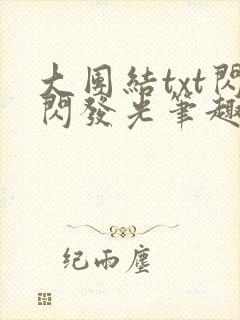 大團結txt閃
閃發光筆趣
纪雨塵